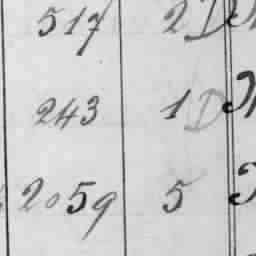 517 2 D
243 1 D
2059 5